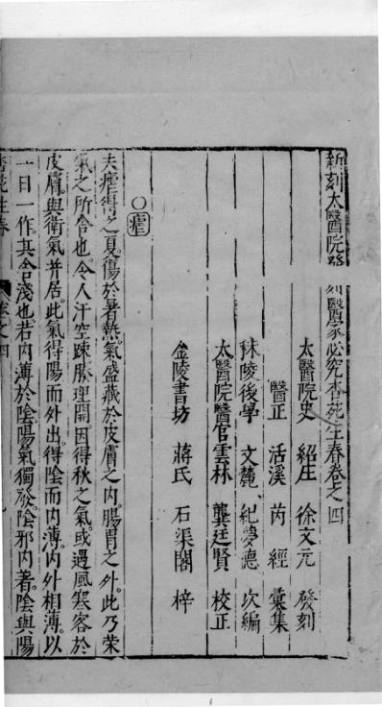 新刻太醫院
刻醫學家必究杏苑生春卷之四
太醫院吏 紹庄 徐文元 發刻
醫正 活溪 芮 經 彙集
秣陵後學 文麓 紀夢德 次編
太醫院醫官雲林 龔廷賢 校正
金陵書坊 蔣氏 石渠閣 梓
○瘧
夫瘧得之夏傷於暑熱氣盛藏於皮膚之內腸胃之外此乃荣
氣之所舍也令人汗空踈腠理開因得秋之氣或遇風寒客於
皮膚與衛氣并居此氣得陽而外出得陰而內薄內外相薄以
一日一作其舍淺也若內薄於陰陽氣獨發陰邪內著陰與陽
杏苑生春
卷之四